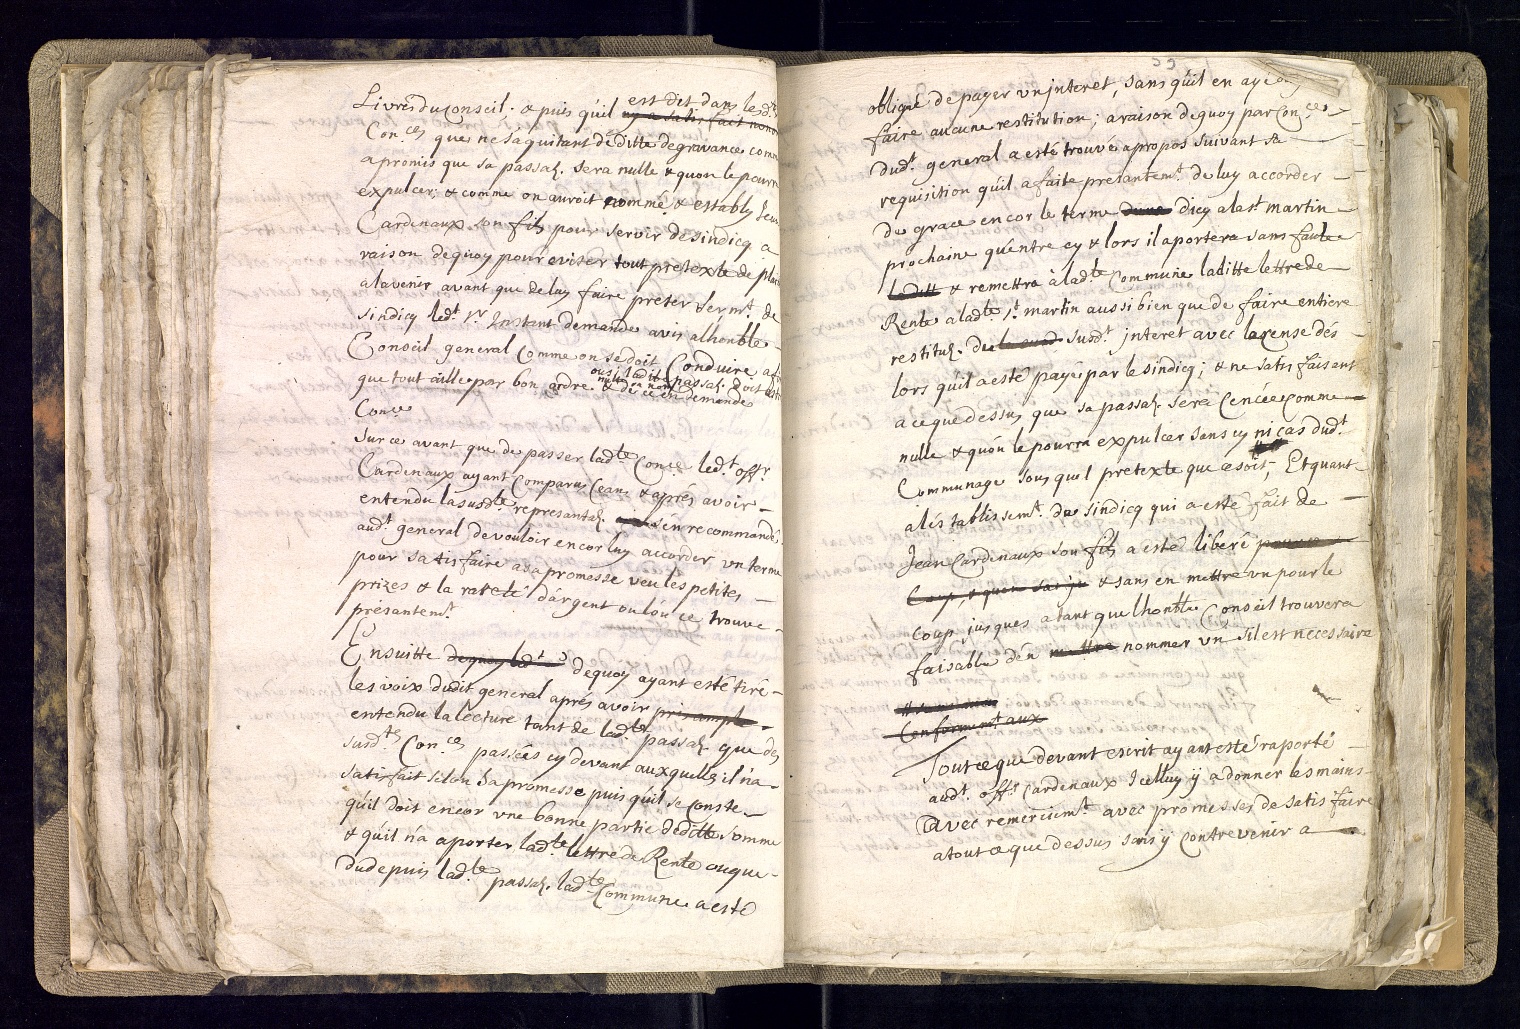 Livres du Conseil. & puis qu'il est dit dans les d.tes
Con.ces que ne saquitant de ditte degravance comm
a promis que sa passa~. sera nulle & quon le pourra
expulcer; & comme on auroit nommé & establÿ Jean
Cardenaux son filz pour servir de sindicq a
raison dequoy pour eviter tout pretexte de plain
alavenir avant que de luy faire preter serm.t de
sindicq led.t Sr Instant demande avis alhonble
Conseil general Comme on se doit Conduire afin
ousi ladite passa~. doit estre
nulle ou non
que tout aille par bon ordre. & de ce en demande
Con.ce
Sur ce avant que de passer lad.te Con.ce led.t off.r
Cardenaux ayant Comparus Ceans & aprés avoir
entendu la susd.te represanta~. s'en recommandé
aud.t general de vouloir encor luy accorder un terme
pour satisfaire a sa promesse veu les petites
prizes & la rareté d'argent ou lon ce trouve
présantem.t
Ensuitte dequoy ayant esté tiré
les voix dudit general aprés avoir
entendu la lecture tant de lad.te passa~. que des
susd.tes Con.ces passées cy devant auxquelles il n'a
satisfait selon sa promesse puis quil se Conste
qu'il doit encor vne bonne partie deditte Somme
& qu'il n'a aporter lad.te lettre de Rente ou que
du depuis lad.te passa~. lad.te Commune a esté
obligné de payer vn jnteret, sans qu'il en aye
faire aucune restitution; a raison dequoy par Con.ce
dud.t general a esté trouvé apropos suivant sa
requisition qu'il a faite présantem.t de luy accorder
de grace encor le terme dicy a la s.t martin
prochaine qu'entre cy & lors il aportera sans faute
& remettra à lad.te Commune laditte lettre de
Rente a lad.te s.t martin aussi bien que de faire entiere
restitu~. du susd.t jnteret avec la cense dés
lors qu'il a esté payé par le sindicq; & ne satisfaisant
a ce que dessus que sa passa~. sera Cencée comme
nulle & qu'on le pourra expulcer sans cy ni cas dud.t
Communage sous quel pretexte que ce soit, Et quant
a léstablissem.t de sindicq qui a esté fait de
Jean Cardenaux son filz a esté liberé
& sans en mettre vn pour le
Coup jusques a tant que lhonble Conseil trouvera
faisable d'en nommer vn s'il est necessaire
Tout ce que devant escrit ayant esté raporté
aud.t off.r Cardenaux Jcelluy ÿ a donner les mains
avec remerciem.t avec promesses de satisfaire
a tout ce que dessus sans ÿ Contrevenir a